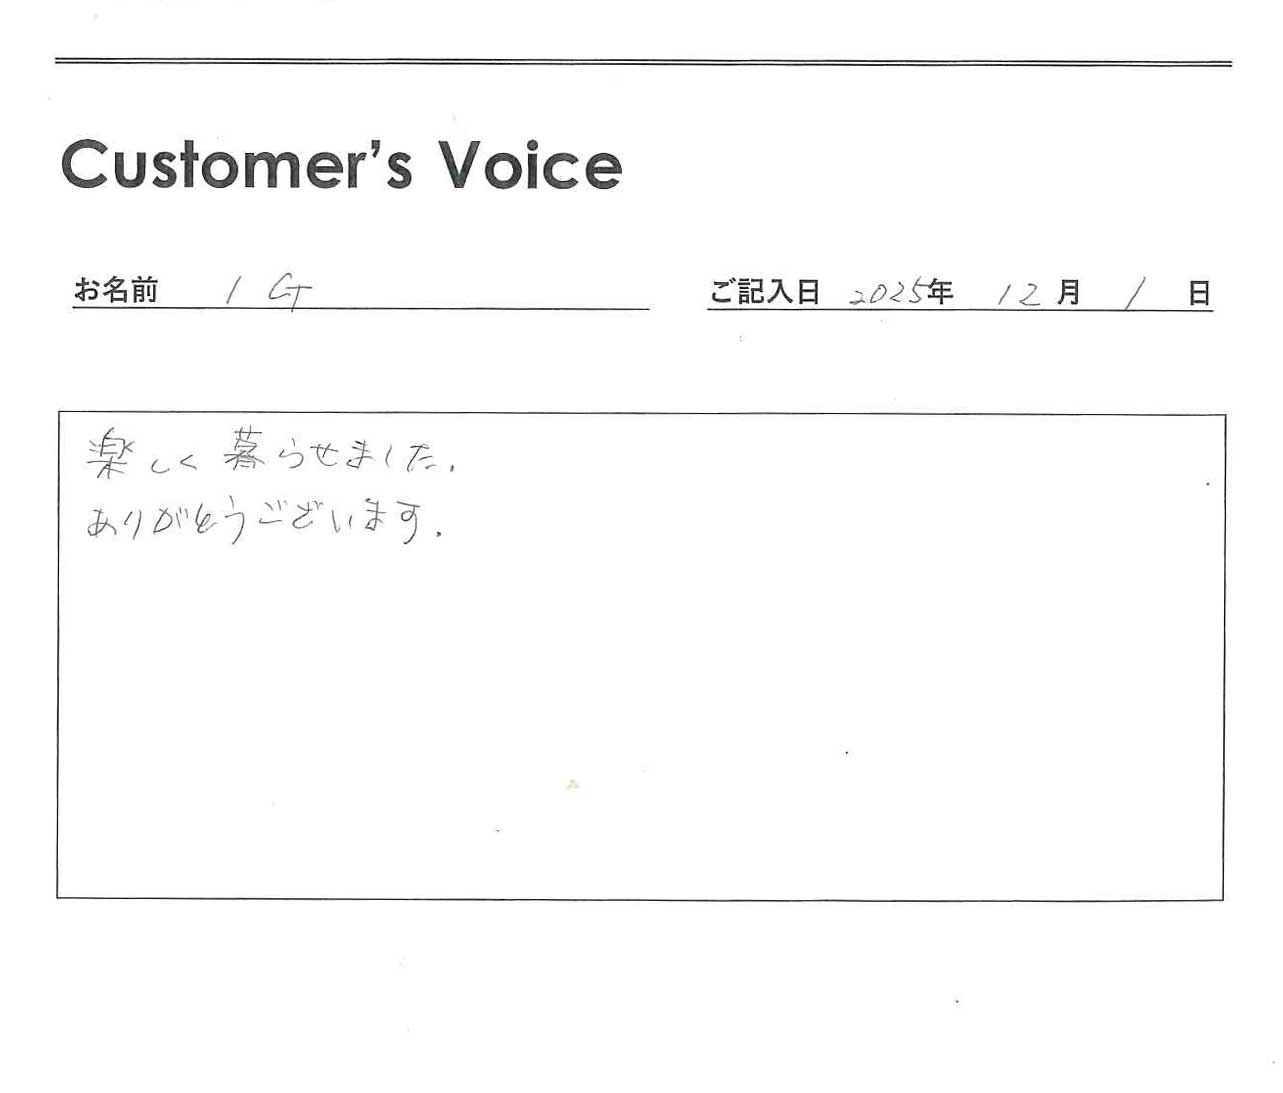 Customer's Voice
お名前 I G
ご記入日 2025年 12月 1日
楽しく暮らせました.
ありがとうございます.